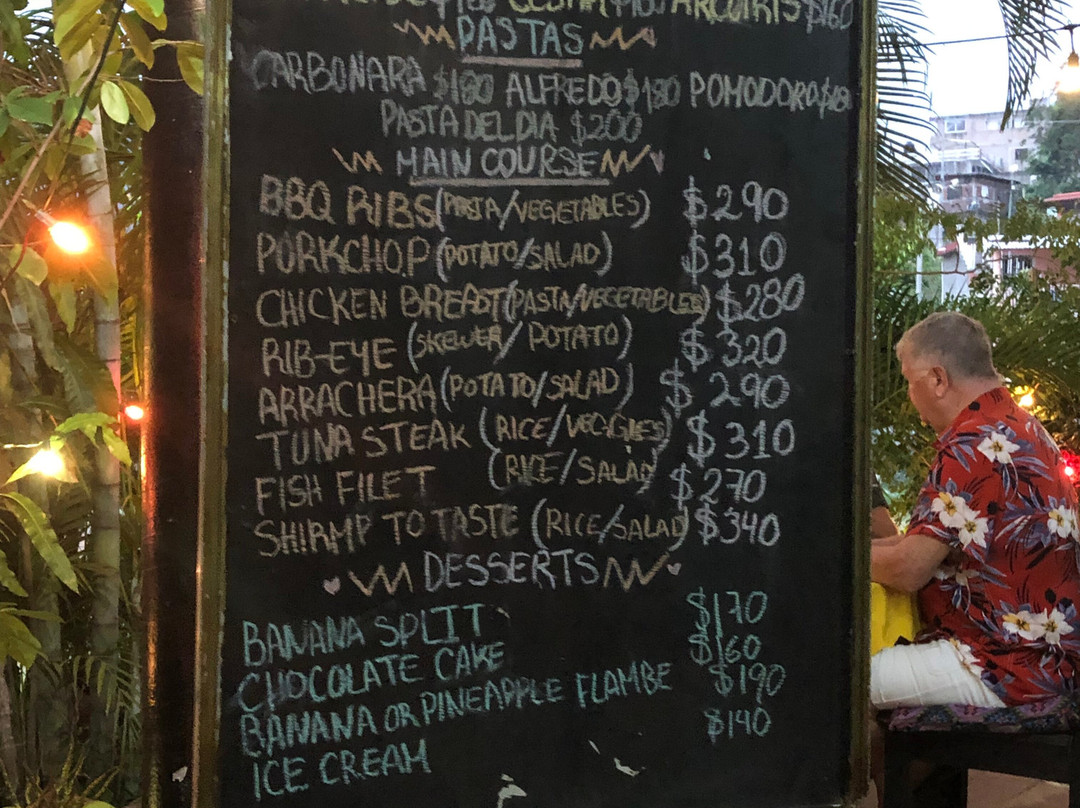 $160
PASTAS
CARBONARA $180 ALFREDO $180 POMODORO
PASTA DEL DIA $200
MAIN COURSE
BBQ RIBS (PASTA/VEGETABLES) $290
PORKCHOP (POTATO/SALAD) $310
CHICKEN BREAST (PASTA/VEGETABLES) $280
RIB-EYE (SKEWER/POTATO) $320
ARRACHERA (POTATO/SALAD) $290
TUNA STEAK (RICE/VEGGIES) $310
FISH FILET (RICE/SALAD) $270
SHIRMP TO TASTE (RICE/SALAD) $340
DESSERTS
BANANA SPLIT $170
CHOCOLATE CAKE $160
BANANA OR PINEAPPLE FLAMBE $190
ICE CREAM $140